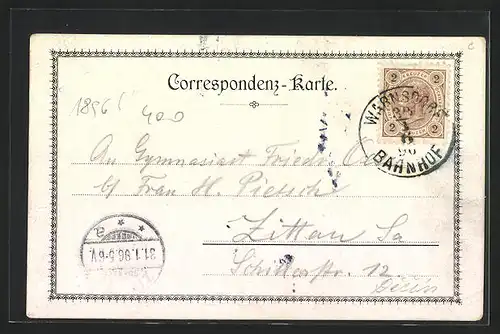 Correspondenz-Karte.
1896!
400
2 2
2 2
WARNSDORF
96
BAHNHOF
An Gymnasiast Friedr.
b/ Frau H. Pietsch
Zittau Sa
Schillerstr. 12
31.1.96.5-6V.